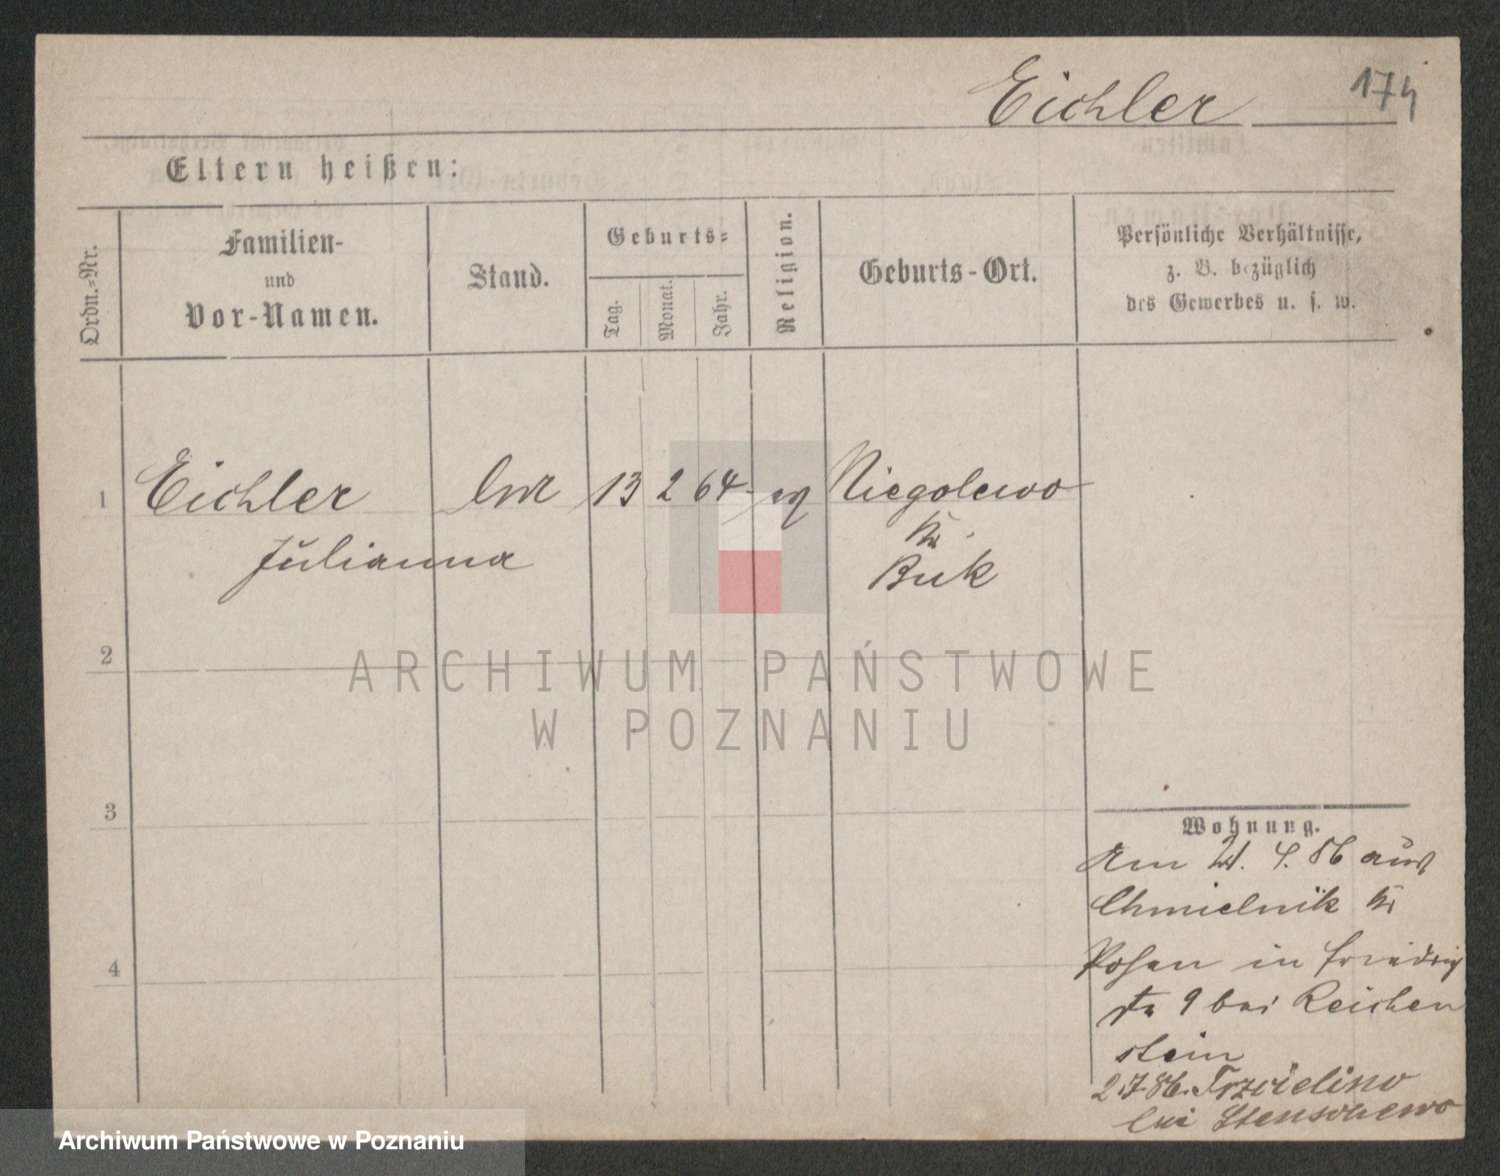 Eichler 174
Eltern heißen:
Ordn.-Nr.
Familien-
und
Vor-Namen.
Stand.
Geburts-
Tag.
Monat.
Jahr.
Religion.
Geburts-Ort.
Persönliche Verhältnisse,
z. B. bezüglich
des Gewerbes u. s. w.
1 Eichler 13 2 64 Niegolewo
Julianna Kr.
Buk
2
ARCHIWUM PAŃSTWOWE
W POZNANIU
3
Wohnung.
Am 4. 86 aus
Chmielnik Kr
4
Posen in Friedrich
str 9 bei Reichen
stein
2.7.86. Trzcielino
bei Stenschewo
Archiwum Państwowe w Poznaniu